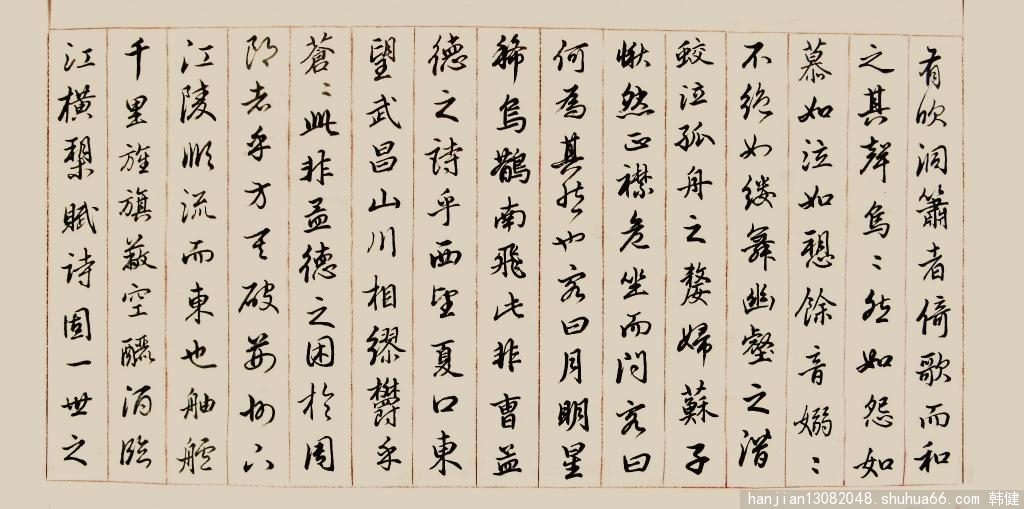 有吹洞簫者倚歌而和
之其聲烏〻然如怨如
慕如泣如愬餘音嫋〻
不絕如縷舞幽壑之潛
蛟泣孤舟之嫠婦蘇子
愀然正襟危坐而問客曰
何為其然也客曰月明星
稀烏鵲南飛此非曹孟
德之詩乎西望夏口東
望武昌山川相繆鬱乎
蒼〻此非孟德之困於周
郎者乎方其破荊州下
江陵順流而東也舳艫
千里旌旗蔽空釃酒臨
江橫槊賦詩固一世之
hanjian13082048.shuhua66.com 韩健